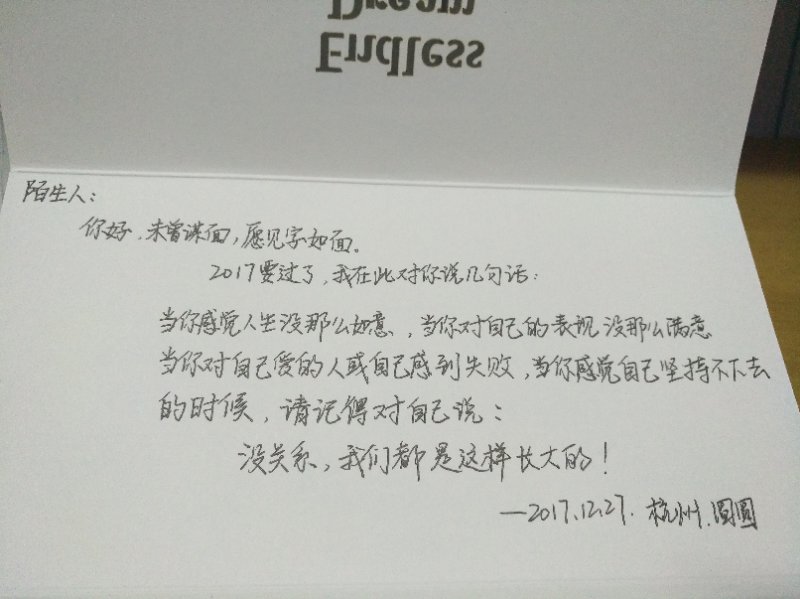 Dream
Endless
陌生人：
你好，未曾谋面，愿见字如面。
2017要过了，我在此对你说几句话：
当你感觉人生没那么如意，当你对自己的表现没那么满意
当你对自己爱的人或自己感到失败，当你感觉自己坚持不下去
的时候，请记得对自己说：
没关系，我们都是这样长大的！
—2017.12.27. 杭州.圆圆